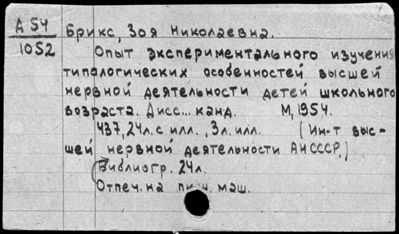 А 54
1052
Брикс, Зоя Николаевна.
Опыт экспериментального изучения
типологических особенностей высшей
нервной деятельности детей школьного
возраста. Дисс... канд. М, 1954.
437, 24л. с илл., 3л. илл. (Ин-т выс-
шей нервной деятельности АН СССР.)
Библиогр. 24л.
Отпеч. на пи.ч. маш.